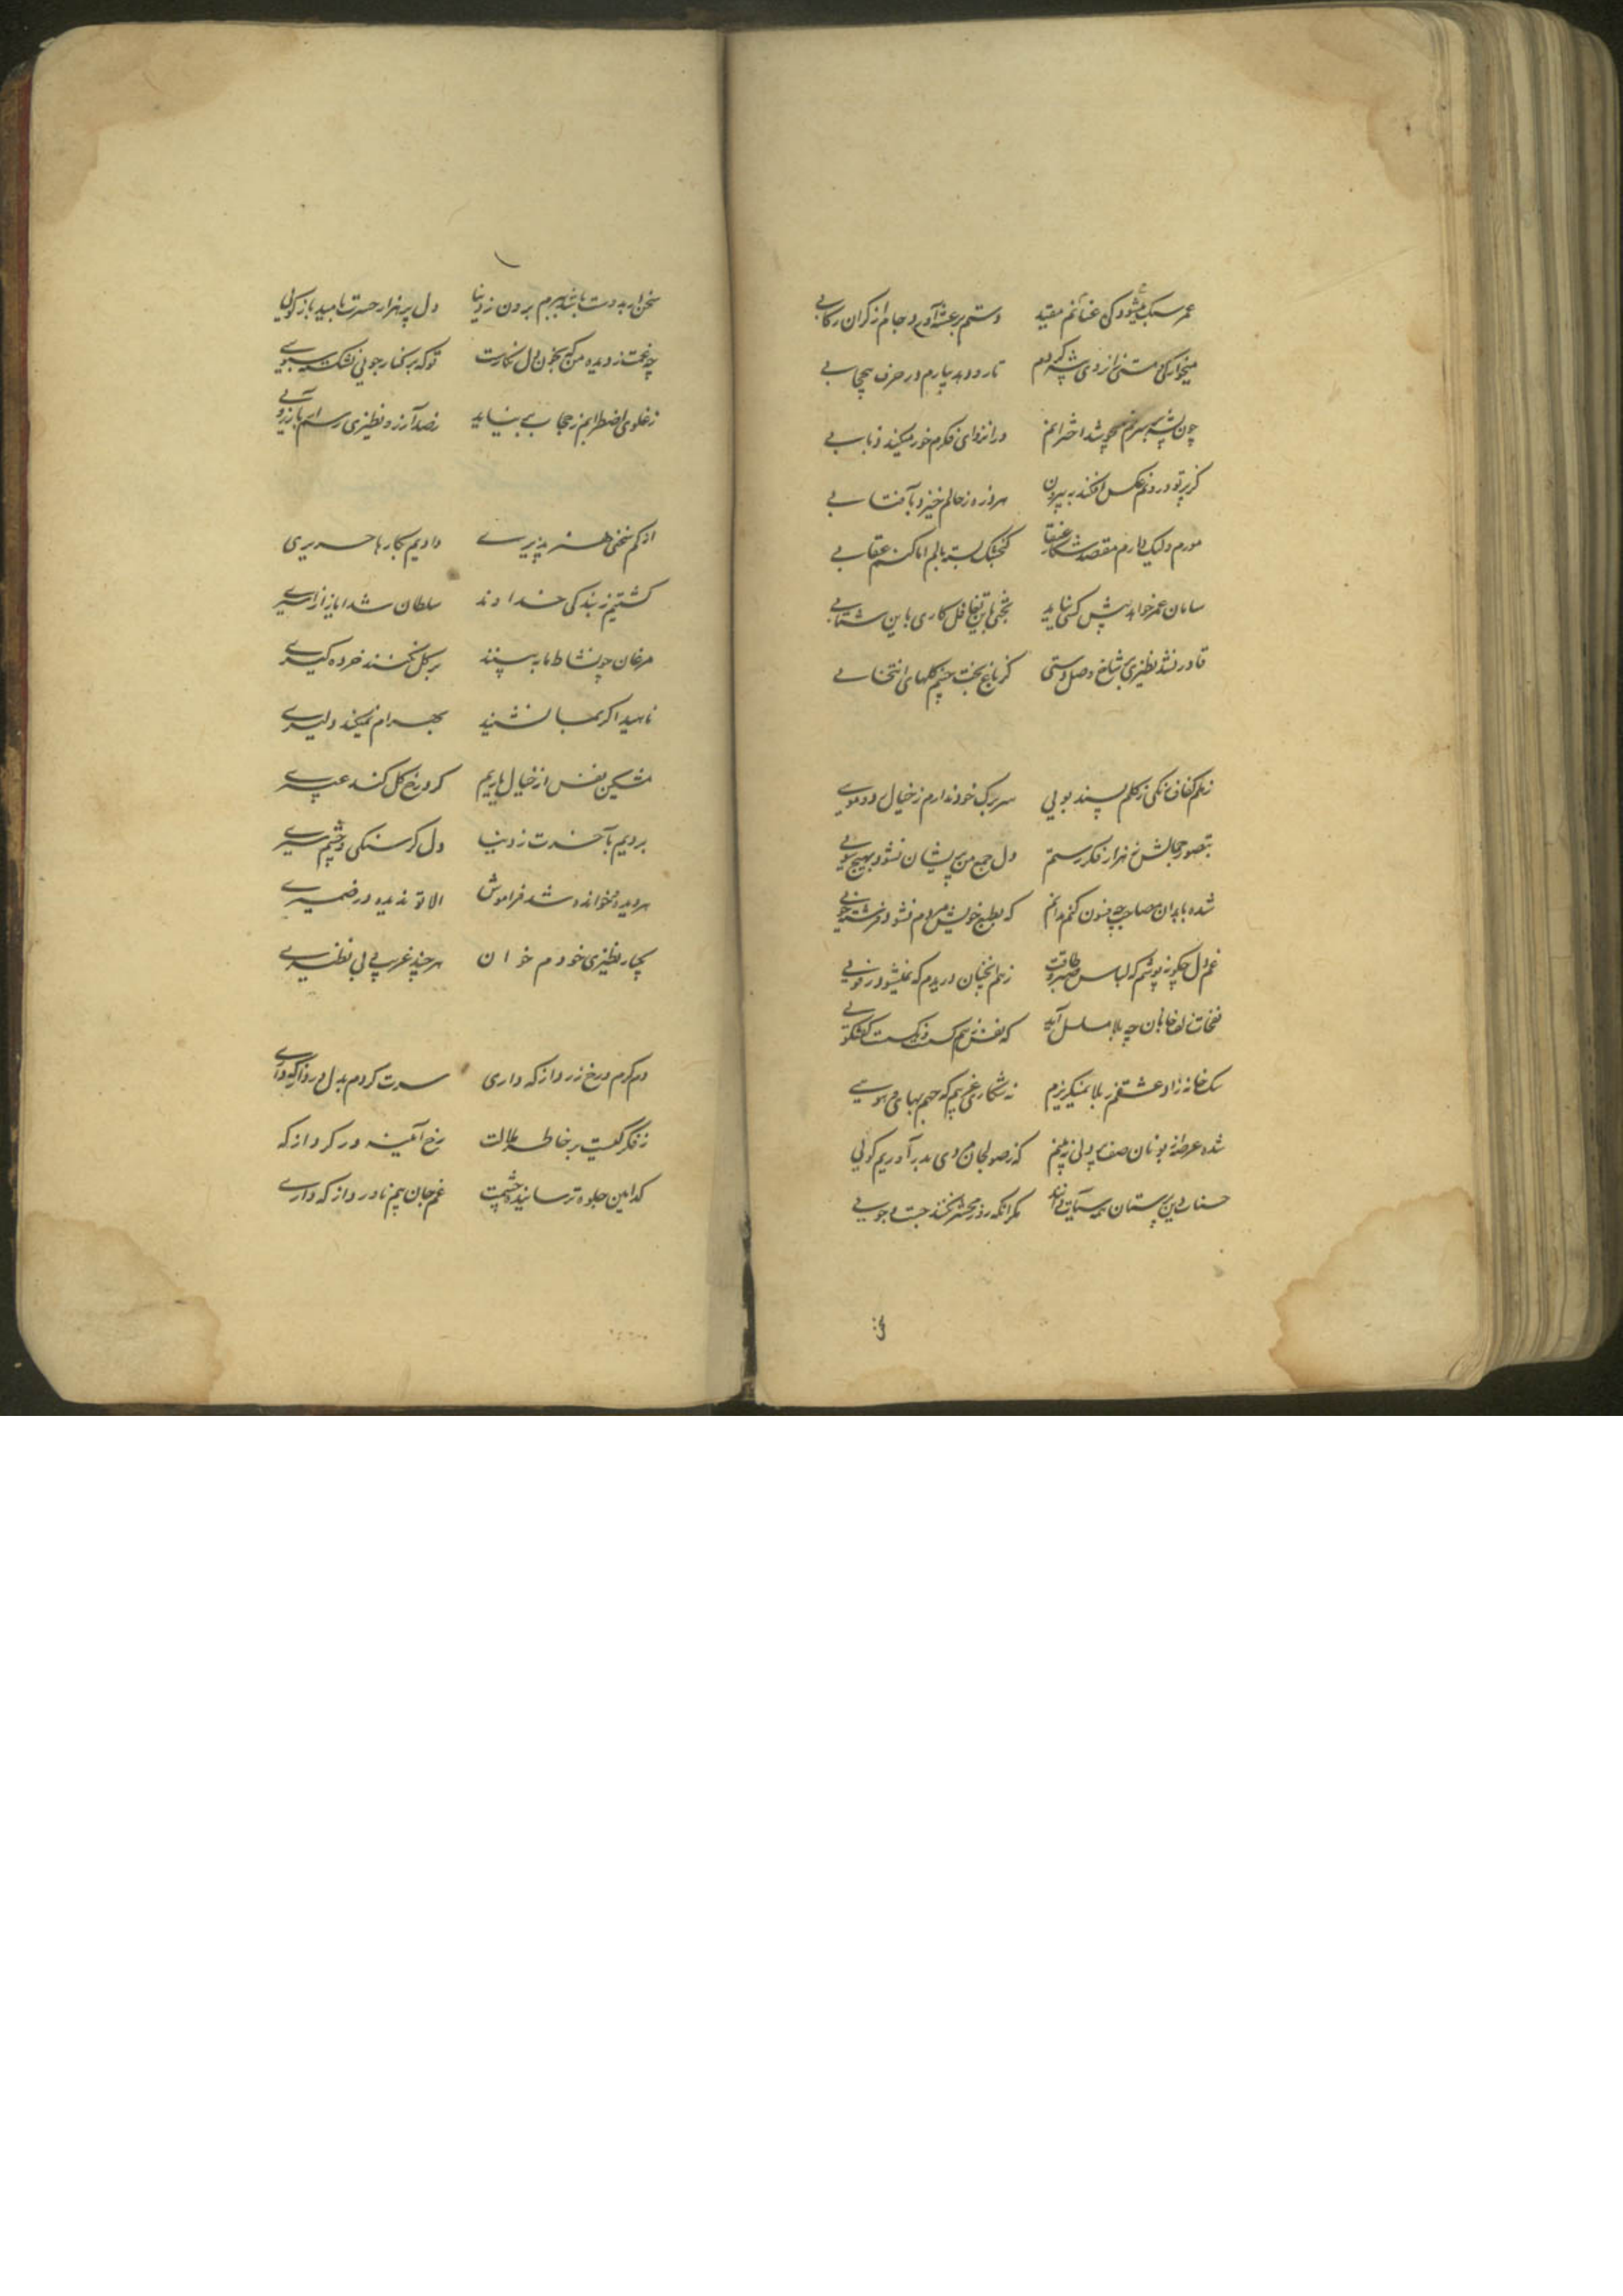 عمر سبک میشود کی عنانم مقید دستم برعشه آورد جام از گران رکابی
میخوارکی و مستی از روی شیشه کردم تا رو دهد بیارم در حرف بیحجابی
چون شیشه بر سرم می پوشد اخترانم در انزوای فکرم خور میکند ذبابی
گر پرتو درونم عکس افکند به بیرون هر ذره ز عالم خیزد بآفتابی
مورم ولیک دارم مقصد شکار عنقا گنجشک بسته بالم اما کنم عقابی
سامان عمر خواهد پیش کسی نیاید بختی باین تغافل کاری باین شتابی
قادر نشد نظیری بر شاخ وصل دستی کز باغ بخت چینم گلهای انتخابی
ز گلم پسند بویی سر برک خود ندارم ز خیال
بتصور جمالش رخ هزار فکر رستم دل جمع من پریشان نشود بهیچ سویی
شده با بدان مصاحب چه فسون کنم ندانم که بطبع خویش مردم نشود فرشته خویی
غم دل چگونه پوشم که لباس صبر و طاقت ز هم آنچنان دریدم که نمیشود رفویی
نفحات زلف خوبان چه بلا مسلسل آید که نفس ز هم گسست و نگسست گفتگویی
سک خانه زاد عشقم ز بلا نمیگریزم نه شکاری غریبم که جهم بهای و هویی
شده عرصه بو نان صف بیدلی نه بینم که ز صولجان مردی بدر آوریم گویی
حسنات دین پرستان مگر آنکه روز محشر نکنند جست و جویی
سخن
سخن ار بدوست باشد ببرم برون ز دنیا دل پر هزار حسرت بامید بازگویی
چه غمت ز دیده من که بخون دل نگارست تو که بر کنار جویی نشکسته سبویی
ز غلوی اضطرابم ز حجاب بینیاید ز صد آرزو نظیری رسم ار بآرزویی
از کم سخنی هنر پذیری دادیم بکارها حریری
گشتیم ز بندگی خداوند سلطان شد ایاز از اسیری
مرغان چو نشاط ما به بینند بر گل نکنند خرده گیری
ناهید اگر بما نشیند بهرام نمیکند دلیری
مشکین نفس از خیال یاریم گرد رخ گل کند عبیری
بردیم بآخرت ز دنیا دل گرسنگی و چشم سیری
هر دیده و خوانده شد فراموش الا تو ندیده در ضمیری
یکبار نظیری خودم خوان هر چند غریبی بی نظیری
دم گرم و رخ زرد از که داری سرت گردم بدل درد از که داری
ز فکر کیست بر خاطر ملالت رخ آئینه در گرد از که
کدامین جلوه ترسانیده چشمت غم جان بیم نادرد از که داری